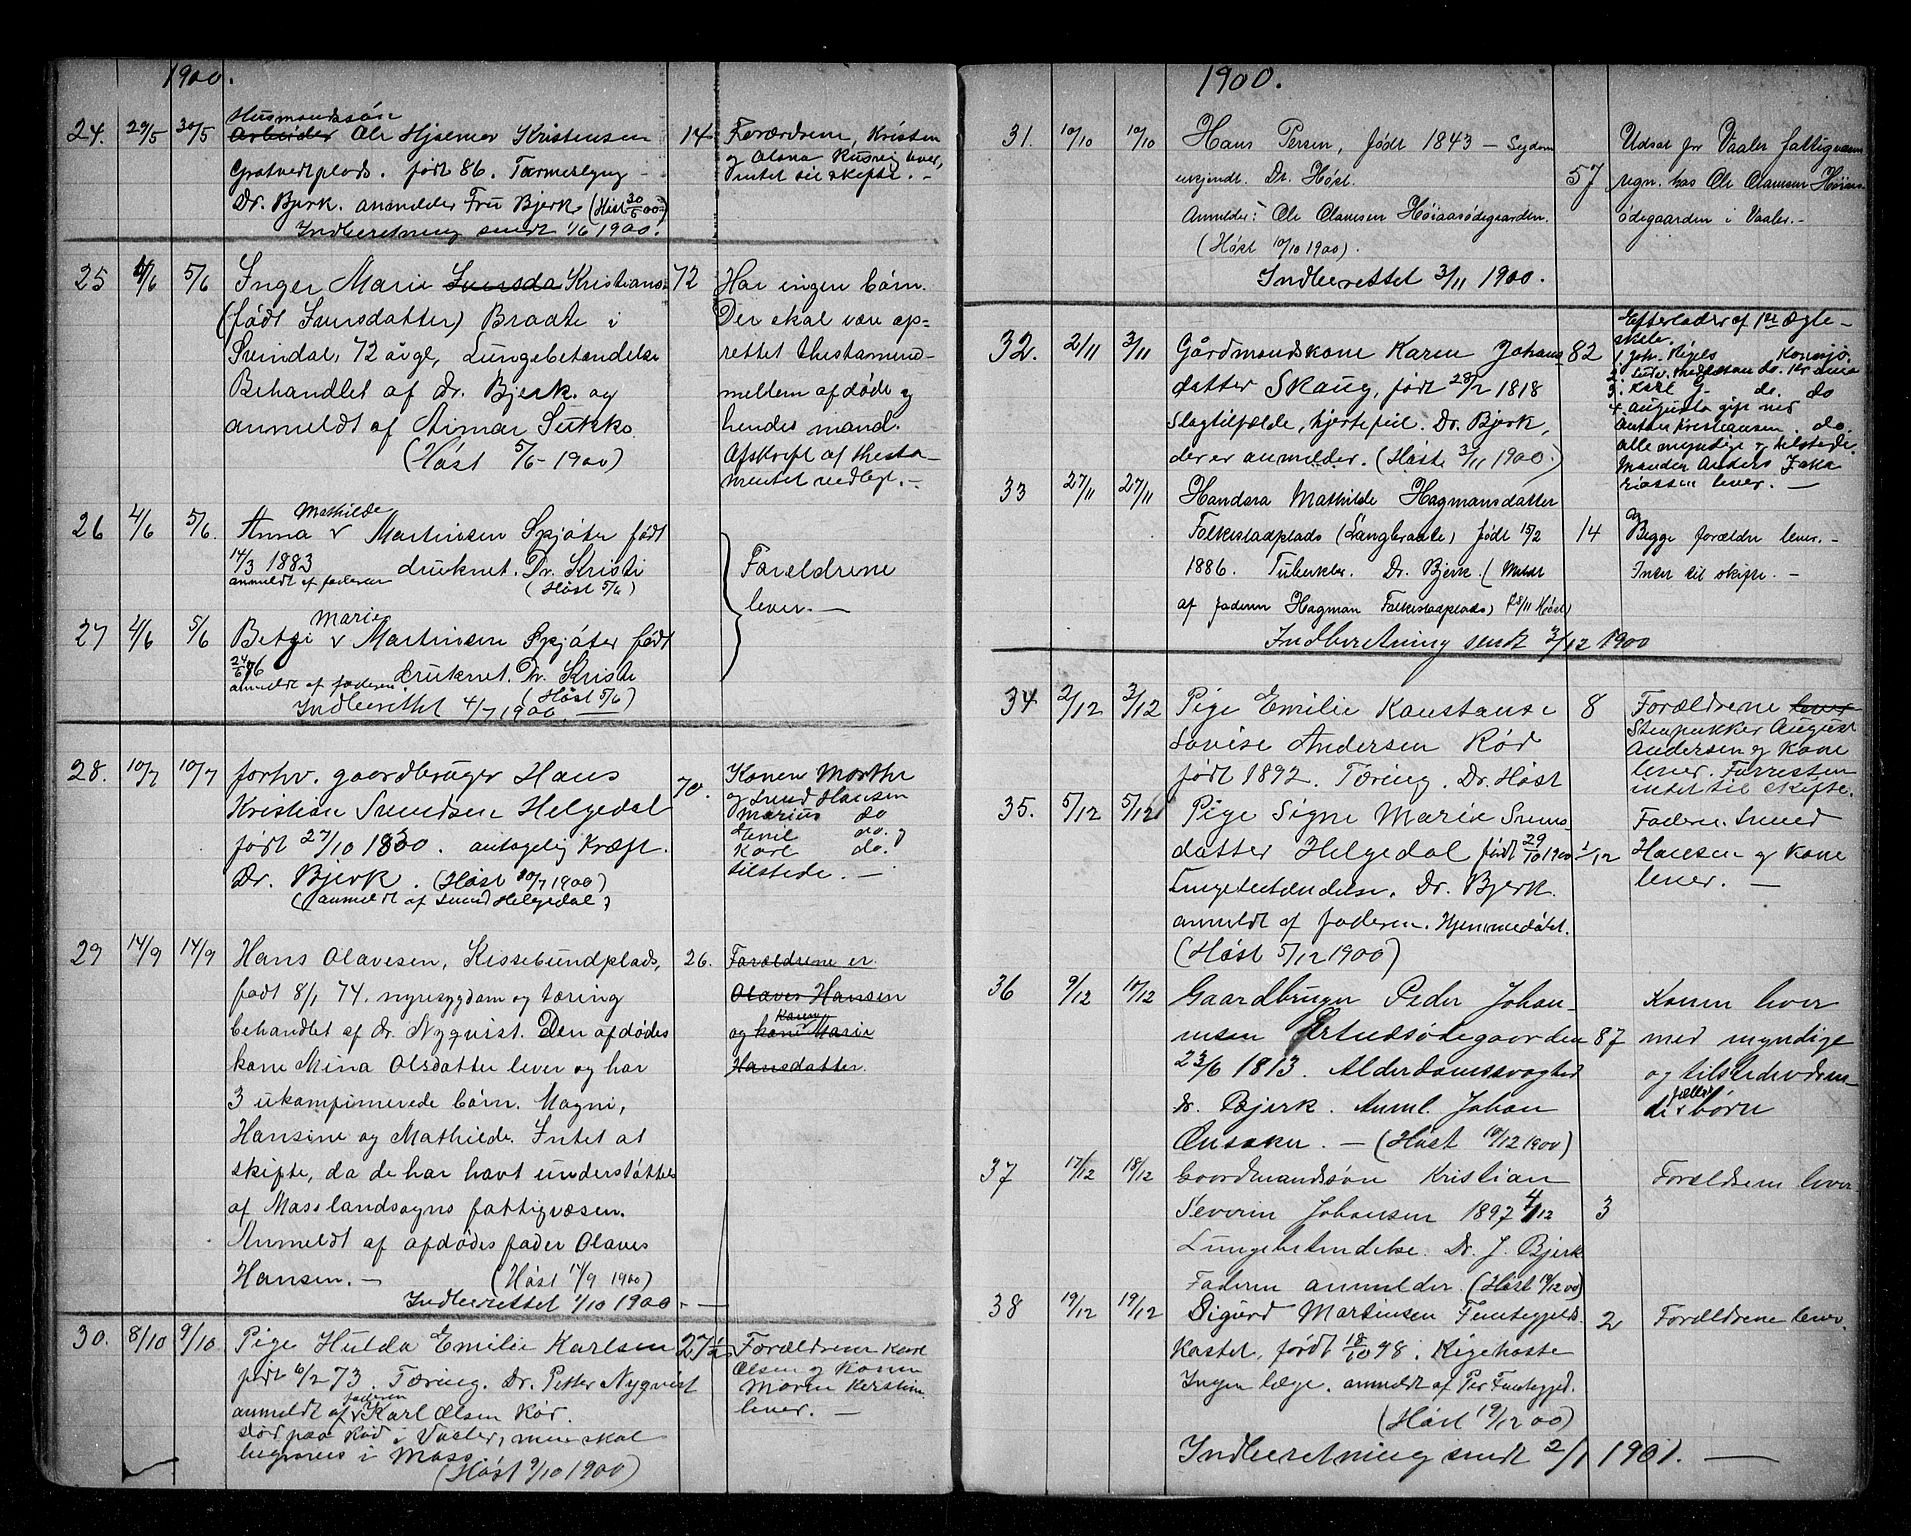 1900.
24. 29/5 30/5 Husmandssøn
Arbeider Ole Hjalmar Kristensen 14 Forældrene, Kristen
og Olava lever,
født 86. intet til skifte. -
Dr. Bjerk. anmelder Fru Bjerk (Høst 30/5 00)
Indberetning sendt 1/6 1900.
25 4/6 5/6 Inger Marie Kristians- 72 Har ingen børn.
(født Svensdatter) Braate i Der skal være op-
Svindal, 72 år gl, Lungebetændelse rettet thestamend-
Behandlet af Dr. Bjerk. og mellem afdøde og
anmeldt af Sukke. hendes mand.
(Høst 5/6 - 1900) Afskrift af thesta-
mentet vedlegt. -
26 4/6 5/6. Anna v Mathilde Martinsen Spjøter født
14/3 1883 druknet. Dr. Kristi Forældrene
anmeldt af faderen (Høst 5/6) lever. -
27 4/6 5/6 Betzi v Marie Martinsen Spjøter født
druknet. Dr. Kristi
anmeldt af faderen. (Høst 5/6)
Indberettet 4/7 1900. -
28. 10/7 10/7 forhv. gaardbruger Hans 70. Konen Marthe
Kristian Svendsen Helgedal og Svend Hansen
født 27/10 1830. antagelig Kræft. Marius do
Dr. Bjerk. (Høst 10/7 1900) Emil do. og
(anmeldt af Svend Helgedal) Karl do.
tilstede. -
29 14/9 14/9 Hans Olavesen, Kissebundplads, 26. Forældrene er
født 8/1 74. nyresygdom og tæring Olaves Hansen
behandlet af dr. Nyqvist. Den afdødes og kone Karen Marie
kone Mina Olsdatter lever og har Hansdatter.
3 ukonfirmerede børn. Magni,
Hansine og Mathilde. Intet at
skifte, da de har havt understøttelse
af Mosslandsogns fattigvæsen.
Anmeldt af afdødes fader Olaves
Hansen. - (Høst 14/9 1900)
Indberettet 1/10 1900. -
30. 8/10 9/10 Pige Hulda Emilie Karlsen 27 1/2 Forældrene Karl
født 6/2 73. Tæring. Dr. Petter Nyqvist Olsen og Konen
anmeldt af v faderen Karl Olsen Rød. Maren Kerstine
død paa Rød i Vaaler, men skal lever. -
begraves i Moss.
(Høst 9/10 1900)
1900.
31. 10/10 10/10 Hans Persen, født 1843 - Sygdom 57 Udsat for Vaaler fattigvæsen
ukjendt. Dr. Høst. regn. hos Ole Olavesen Høiaas-
Anmelder: Ole Olavesen Høiaasødegaarden. ødegaarden i Vaaler. -
(Høst 10/10 1900).
Indberettet 3/11 1900.
32. 2/11 3/11 Gårdmandskone Karen Johans- 82 Efterlader af 1ste ægte-
datter Skaug, født 28/2 1818 skab.
Slagtilfælde, hjertefeil. Dr. Bjerk,
der er anmelder. (Høst 3/11 1900.) 3. Karl G. do. do
4. Augusta gift med
Anton Kristiansen. do.
alle myndige og tilstede.
Manden Anders Zaka
riassen lever. -
33 27/11 27/11 Handora Mathilde Hagmansdatter 14 Begge forældre lever. -
Falkestadplads (Langbraate) født 15/2 Intet til skifte. -
1886. Tuberkler. Dr. Bjerk. (Meldt
af faderen Hagman Falkestadplads)
Indberetning sendt 3/12 1900
34 2/12 3/12 Pige Emilie Konstanse 8 Forældrene lever
Lovise Andersen Rød Stenpukker August
født 1892. Tæring. Dr. Høst Andersen og kone
lever. Forresten
intet til skifte.
35. 5/12 5/12 Pige Signe Marie Svens- 1/12 Faderen Svend
datter Helgedal født 29/10 1900 Hansen og kone
Lungebetændelse. Dr. Bjerk lever. -
anmeldt af faderen. Hjemmedøbt.
(Høst 5/12 1900)
36 9/12 10/12 Gaardbruger Peder Johan- 87 Konen lever
nesen Ertudsødegaarden med myndige
23/6 1813. Alderdomssvaghed og tilstedeværen-
dr. Bjerk. Anml. Johan de v fælles børn
. - (Høst 10/12 1900)
37 17/12 18/12 Gaardmandssøn Kristian 3 Forældrene lever
Severin Johansen 1897 4/12
Lungebetændelse. Dr. J. Bjerk
Faderen anmelder (Høst 18/12 00)
38 19/12 19/12 Sigurd Martinsen 2 Forældrene lever.
Kastet, født 18/10 98. Kighoste
Ingen læge. anmeldt af Per
(Høst 19/12 00)
Indberetning sendt 2/1 1901. -